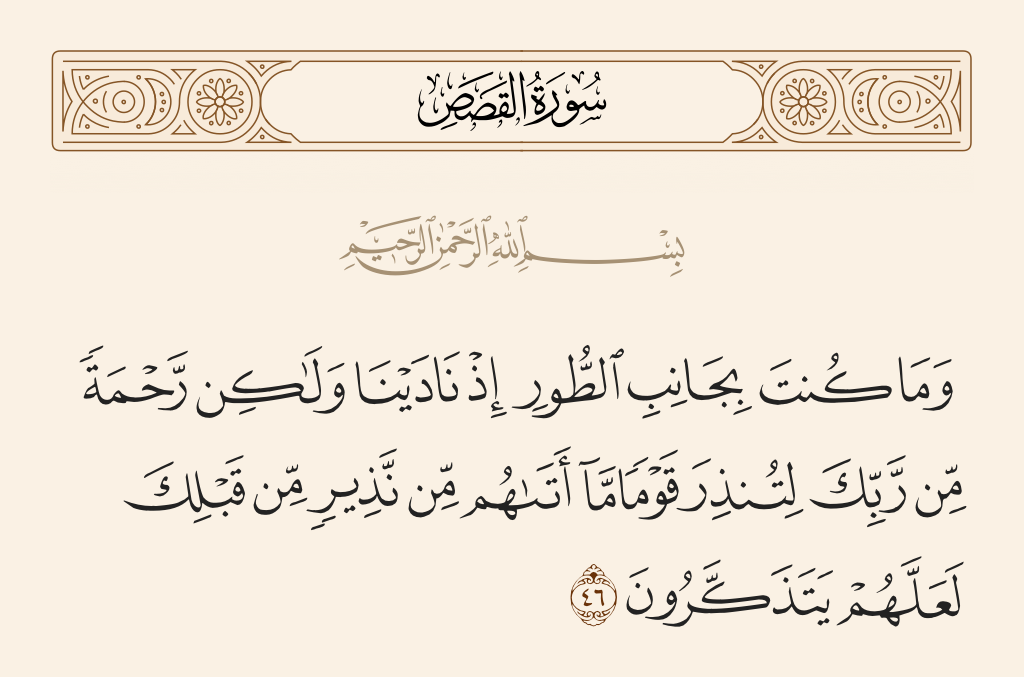 سُورَةُ القَصَصِ
بِسْمِ ٱللَّهِ ٱلرَّحْمَٰنِ ٱلرَّحِيمِ
وَمَا كُنتَ بِجَانِبِ ٱلطُّورِ إِذْ نَادَيْنَا وَلَٰكِن رَّحْمَةً
مِّن رَّبِّكَ لِتُنذِرَ قَوْمًا مَّآ أَتَىٰهُم مِّن نَّذِيرٍ مِّن قَبْلِكَ
لَعَلَّهُمْ يَتَذَكَّرُونَ ٤٦